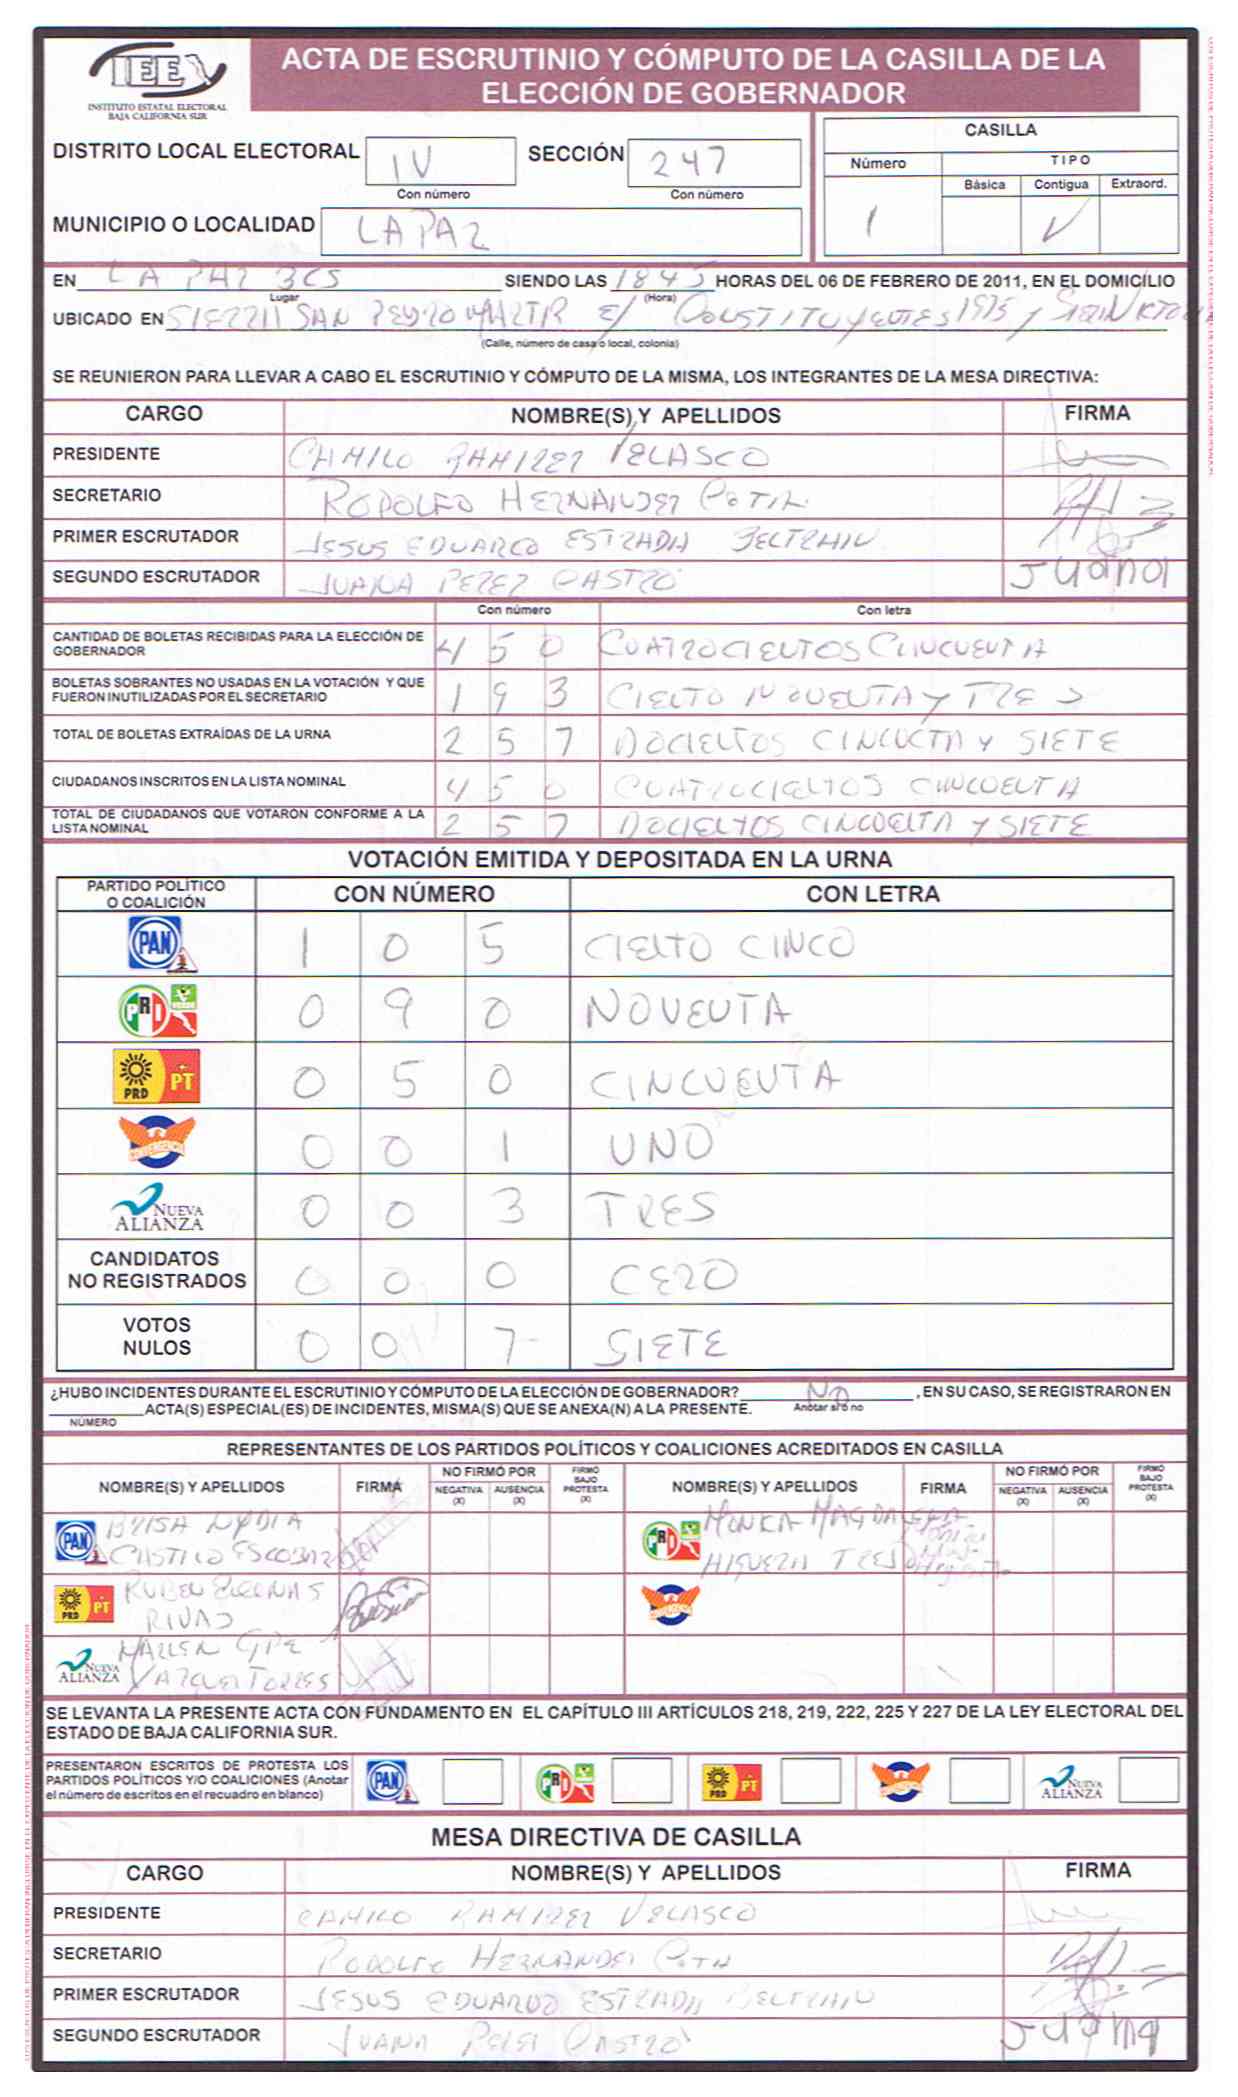 IEE
INSTITUTO ESTATAL ELECTORAL
BAJA CALIFORNIA SUR
ACTA DE ESCRUTINIO Y CÓMPUTO DE LA CASILLA DE LA
ELECCIÓN DE GOBERNADOR
DISTRITO LOCAL ELECTORAL IV SECCIÓN 247
Con número Con número
MUNICIPIO O LOCALIDAD LA PAZ
CASILLA
Número TIPO
Básica Contigua Extraord.
1 ✓
EN LA PAZ BCS SIENDO LAS 1845 HORAS DEL 06 DE FEBRERO DE 2011, EN EL DOMICILIO
Lugar (Hora)
UBICADO EN SIERRA SAN PEDRO MARTIR E/ CONSTITUYENTES 1975 y
(Calle, número de casa o local, colonia)
SE REUNIERON PARA LLEVAR A CABO EL ESCRUTINIO Y CÓMPUTO DE LA MISMA, LOS INTEGRANTES DE LA MESA DIRECTIVA:
CARGO NOMBRE(S) Y APELLIDOS FIRMA
PRESIDENTE CAMILO RAMIREZ VELASCO
SECRETARIO RODOLFO HERNANDEZ
PRIMER ESCRUTADOR JESUS EDUARDO ESTRADA BELTRAN
SEGUNDO ESCRUTADOR JUANA PEREZ CASTRO Juana
Con número Con letra
CANTIDAD DE BOLETAS RECIBIDAS PARA LA ELECCIÓN DE
GOBERNADOR 4 5 0 CUATROCIENTOS CINCUENTA
BOLETAS SOBRANTES NO USADAS EN LA VOTACIÓN Y QUE
FUERON INUTILIZADAS POR EL SECRETARIO 1 9 3 CIENTO NOVENTA Y TRES
TOTAL DE BOLETAS EXTRAÍDAS DE LA URNA 2 5 7 DOCIENTOS CINCUCTA Y SIETE
CIUDADANOS INSCRITOS EN LA LISTA NOMINAL 4 5 0 CUATROCIENTOS CINCUENTA
TOTAL DE CIUDADANOS QUE VOTARON CONFORME A LA
LISTA NOMINAL 2 5 7 DOCIENTOS CINCUENTA Y SIETE
VOTACIÓN EMITIDA Y DEPOSITADA EN LA URNA
PARTIDO POLÍTICO
O COALICIÓN CON NÚMERO CON LETRA
PAN 1 0 5 CIENTO CINCO
PRI VERDE 0 9 0 NOVENTA
PRD PT 0 5 0 CINCUENTA
CONVERGENCIA 0 0 1 UNO
NUEVA ALIANZA 0 0 3 TRES
CANDIDATOS
NO REGISTRADOS 0 0 0 CERO
VOTOS
NULOS 0 0 7 SIETE
¿HUBO INCIDENTES DURANTE EL ESCRUTINIO Y CÓMPUTO DE LA ELECCIÓN DE GOBERNADOR? NO , EN SU CASO, SE REGISTRARON EN
Anotar si o no
ACTA(S) ESPECIAL(ES) DE INCIDENTES, MISMA(S) QUE SE ANEXA(N) A LA PRESENTE.
NÚMERO
REPRESENTANTES DE LOS PARTIDOS POLÍTICOS Y COALICIONES ACREDITADOS EN CASILLA
NOMBRE(S) Y APELLIDOS FIRMA NO FIRMÓ POR NEGATIVA (X) AUSENCIA (X) FIRMÓ BAJO PROTESTA (X) NOMBRE(S) Y APELLIDOS FIRMA NO FIRMÓ POR NEGATIVA (X) AUSENCIA (X) FIRMÓ BAJO PROTESTA (X)
PAN BRISA NYDIA
CASTRO ESCOBAR
PRI MONICA MAGDALENA
HIGUERA
PRD PT RUBEN
RIVAS
NUEVA ALIANZA GPE
VAZQUEZ TORRES
SE LEVANTA LA PRESENTE ACTA CON FUNDAMENTO EN EL CAPÍTULO III ARTÍCULOS 218, 219, 222, 225 Y 227 DE LA LEY ELECTORAL DEL
ESTADO DE BAJA CALIFORNIA SUR.
PRESENTARON ESCRITOS DE PROTESTA LOS
PARTIDOS POLÍTICOS Y/O COALICIONES (Anotar
el número de escritos en el recuadro en blanco)
PAN PRI PRD PT NUEVA ALIANZA
MESA DIRECTIVA DE CASILLA
CARGO NOMBRE(S) Y APELLIDOS FIRMA
PRESIDENTE CAMILO RAMIREZ VELASCO
SECRETARIO RODOLFO HERNANDEZ
PRIMER ESCRUTADOR JESUS EDUARDO ESTRADA BELTRAN
SEGUNDO ESCRUTADOR JUANA PEREZ CASTRO Juana